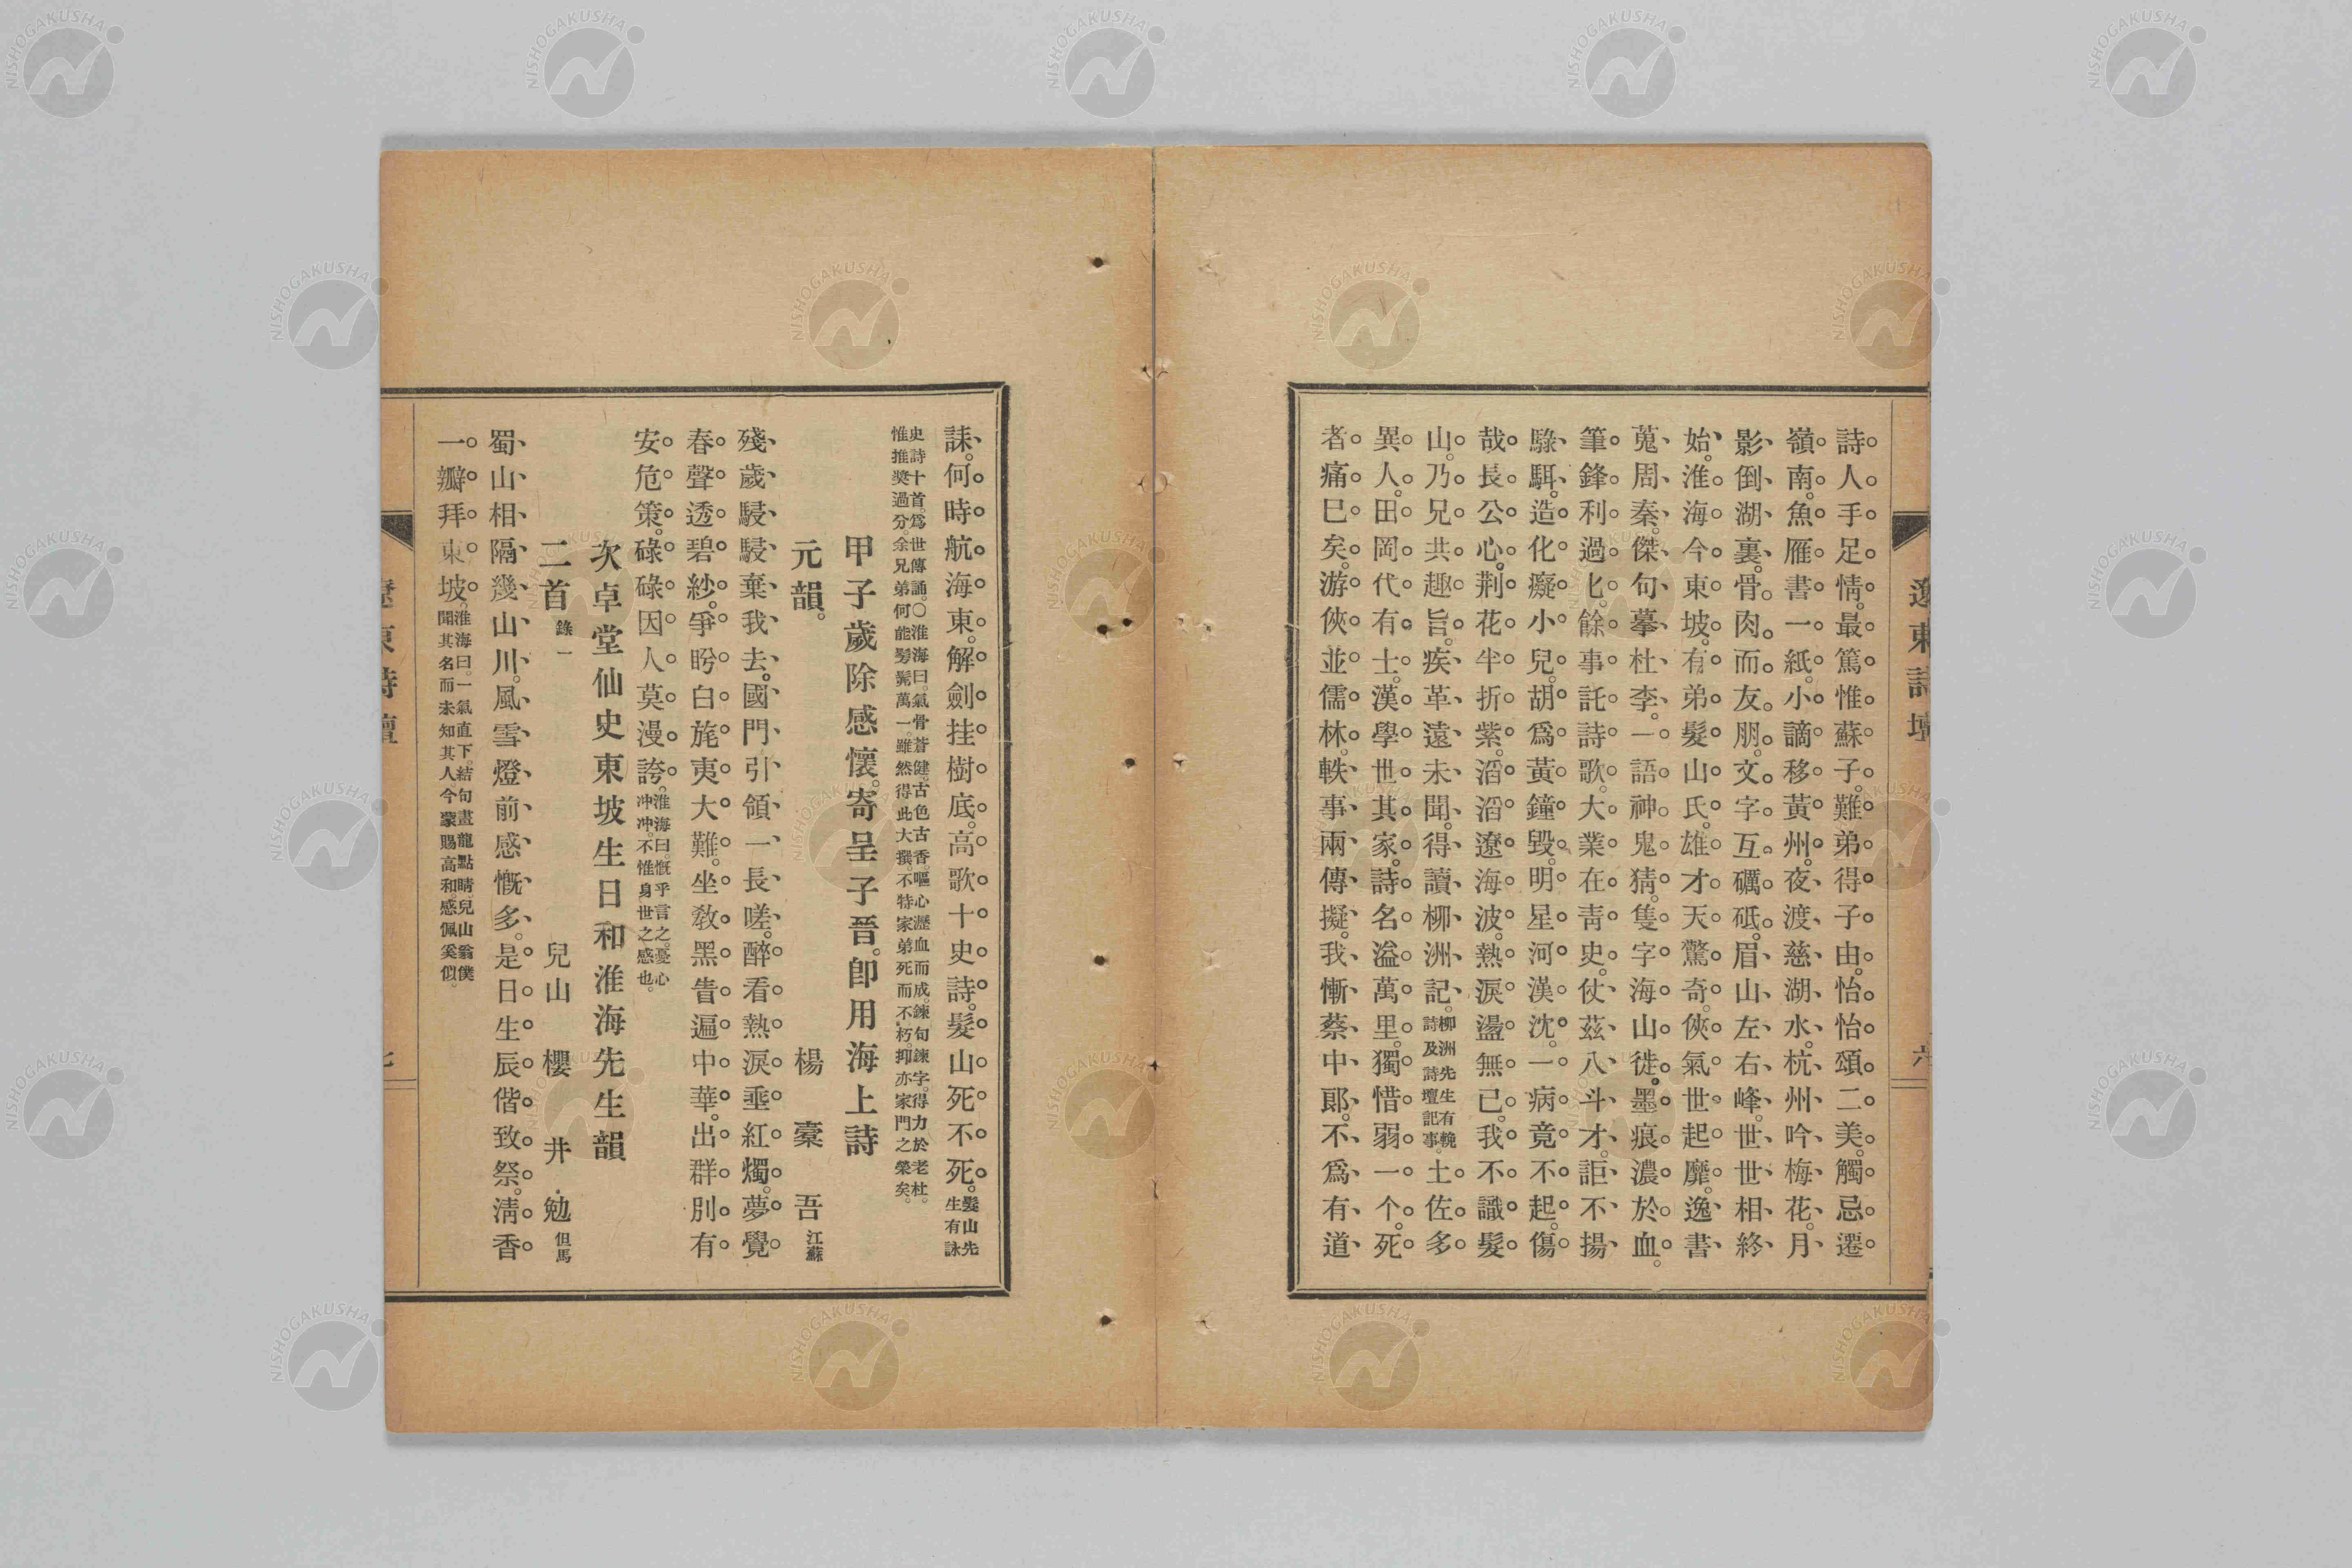 詩人手足情。最篤惟蘇子。難弟得子由。怡怡頌二美。觸忌遷
嶺南。魚雁書一紙。小謫移黃州。夜渡慈湖水。杭州吟梅花。月
影倒湖裏。骨肉而友朋。文字互礪砥。眉山左右峰。世世相終
始。淮海今東坡。有弟髮山氏。雄才天驚奇。俠氣世起靡。逸書
蒐周秦。傑句摹杜李。一語神鬼猜。隻字海山徙。墨痕濃於血。
筆鋒利過匕。餘事託詩歌。大業在靑史。仗茲八斗才。詎不揚
騄駬。造化癡小兒。胡爲黃鐘毀。明星河漢沈。一病竟不起。傷
哉長公心。荆花半折紫。滔滔遼海波。熱淚盪無已。我不識髮
山。乃兄共趣旨。疾革遠未聞。得讀柳洲記。柳洲先生有輓詩及詩壇記事。土佐多
異人。田岡代有士。漢學世其家。詩名溢萬里。獨惜弱一个。死
者痛巳矣。游俠並儒林。軼事兩傳擬。我慚蔡中郞。不爲有道
遼東詩壇 六
誄。何時航海東。解劍挂樹底。高歌十史詩。髮山死不死。髮山先生有詠
史詩十首。爲世傳誦。〇淮海曰。氣骨蒼健。古色古香。嘔心瀝血而成。鍊句鍊字。得力於老杜。
惟推奬過分。余兄弟何能髣髴萬一。雖然得此大撰。不特家弟死而不朽。抑亦家門之榮矣。
甲子歲除感懷。寄呈子晉。卽用海上詩
元韻。 楊槖吾 江蘇
殘歲駸駸棄我去。國門引領一長嗟。醉看熱淚垂紅燭。夢覺
春聲透碧紗。爭盼白旄夷大難。坐敎黑眚遍中華。出群別有
安危策。碌碌因人莫漫誇。淮海曰。慨乎言之。憂心冲冲。不惟身世之感也。
次卓堂仙史東坡生日和淮海先生韻
二首 錄一 兒山 櫻井勉 但馬
蜀山相隔幾山川。風雪燈前感慨多。是日生辰偕致祭。淸香
一瓣拜東坡。淮海曰。一氣直下。結句畫龍點睛。兒山翁僕聞其名而未知其人。今蒙賜高和。感佩奚似。
遼東詩壇 七
NISHOGAKUSHA